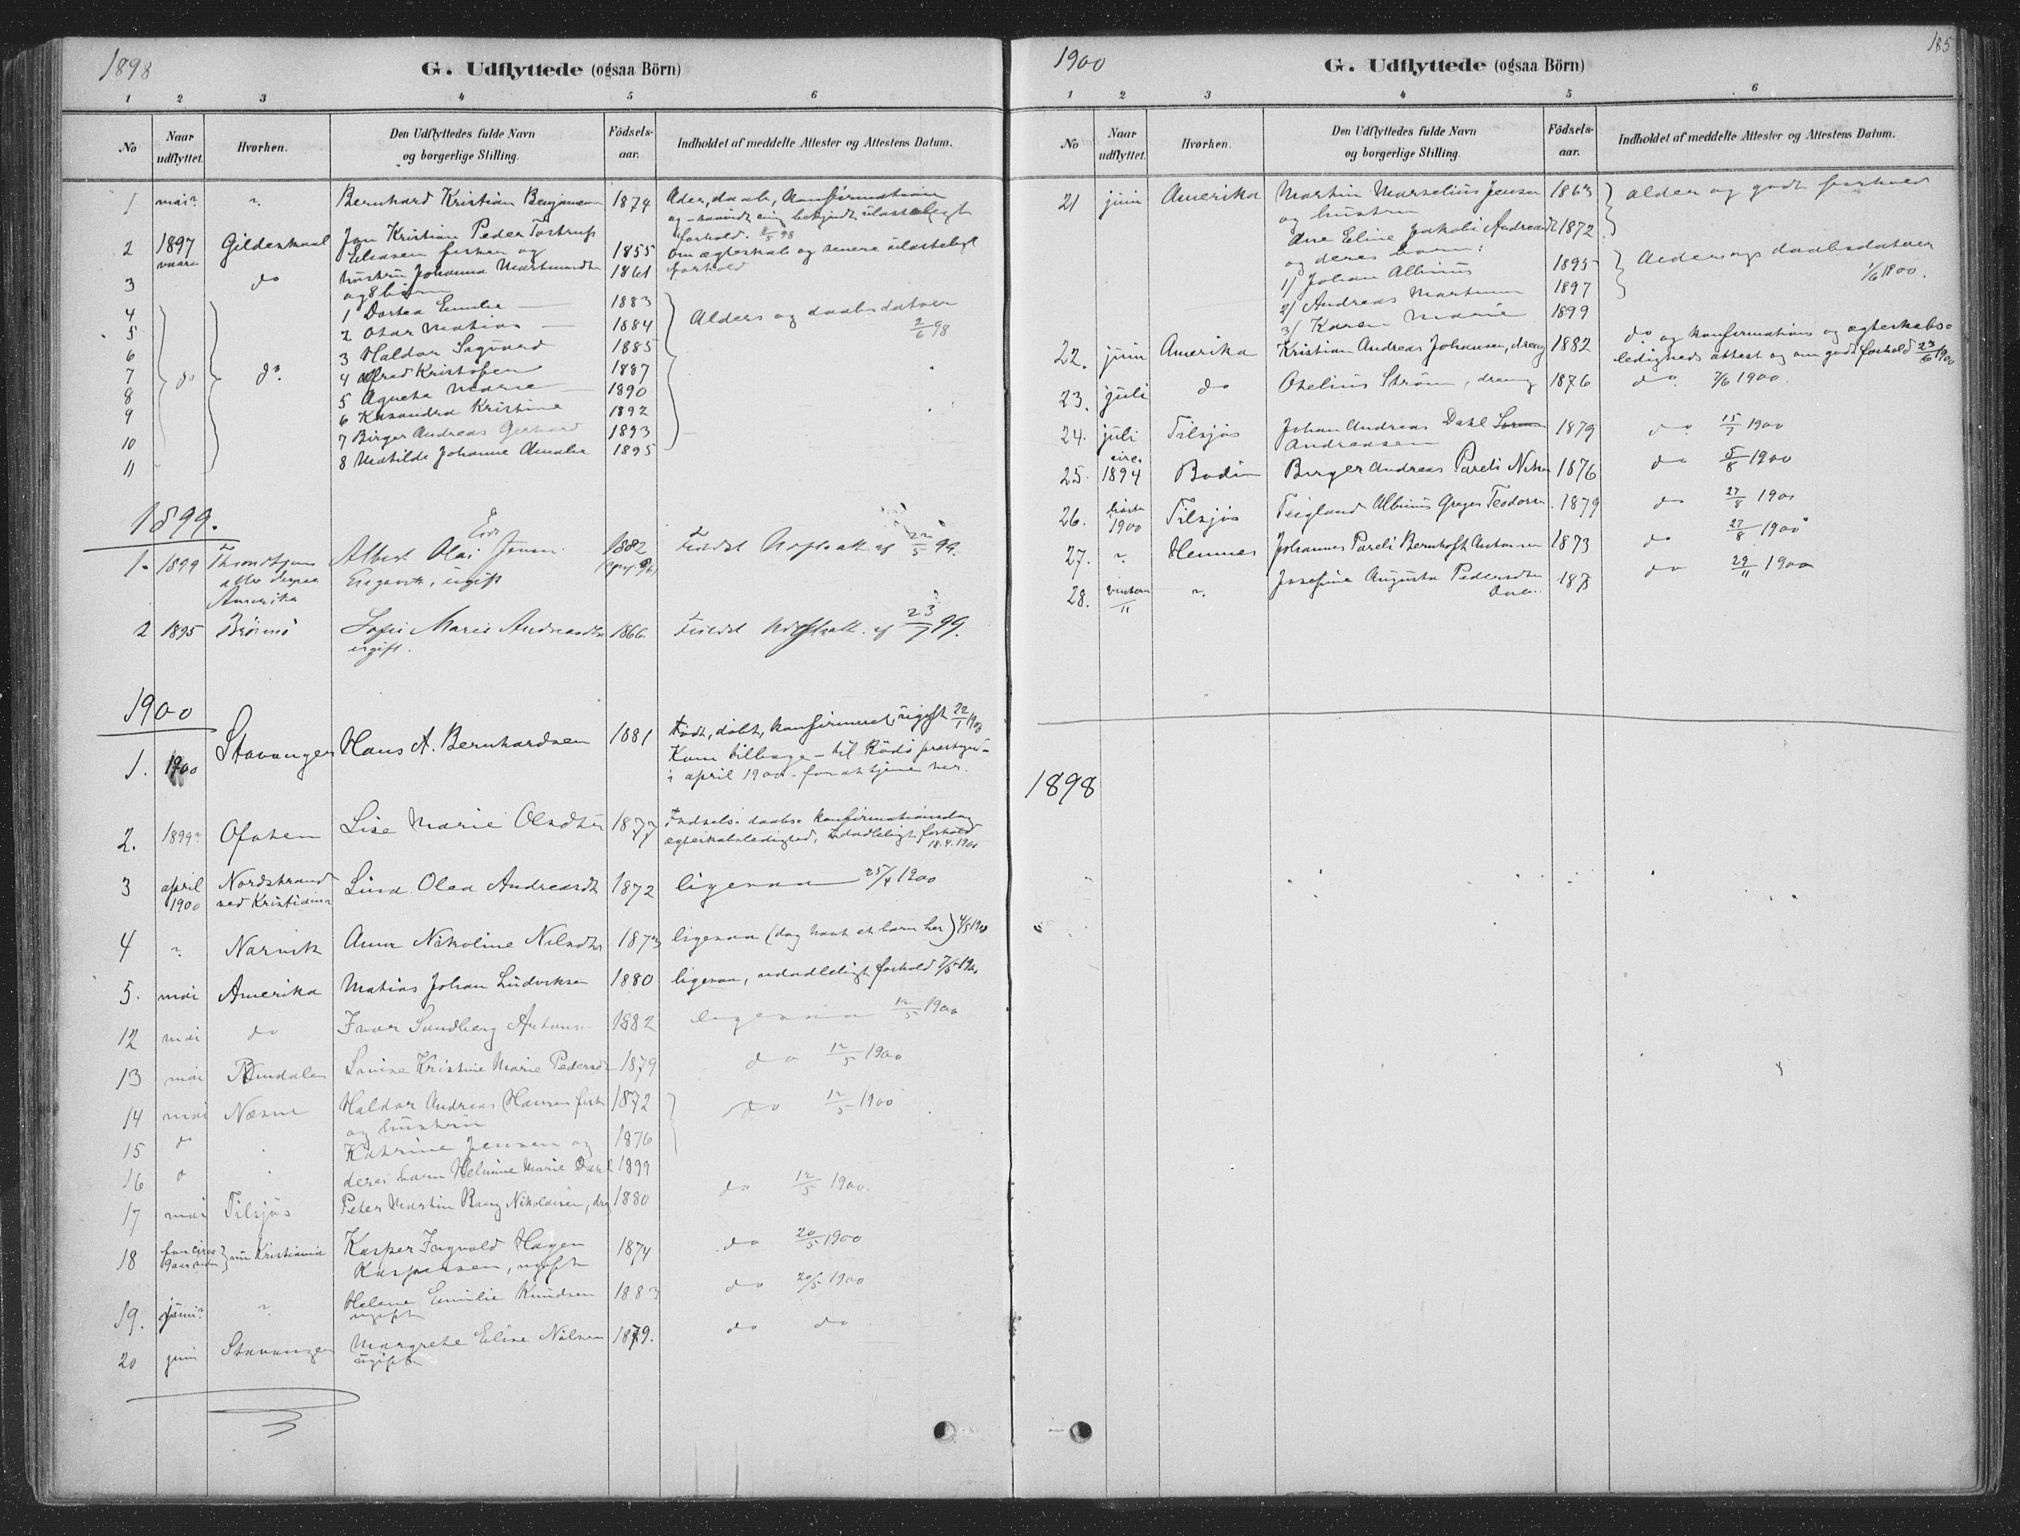 1898
G. Udflyttede (ogsaa Börn)
1 2 3 4 5 6
No
Naar udflyttet.
Hvorhen.
Den Udflyttedes fulde Navn og borgerlige Stilling.
Födsels-aar.
Indholdet af meddelte Attester og Attestens Datum.
1 mai? " Bernhard Kristian Benjaminsen 1874 Alder, daab, konfirmation
og
forhold. 2/5 98
2 1897 Gildeskaal Jon Kristian Peder Tostrup
Eliasen fisker og 1855 om ægteskab og senere ulasteligt
3 do hustru Johanna Martinusdtr 1861 forhold
og 8 børn
4 1 Dortea Emelie 1883 Alders og daabsdatoer
5 2 Otar Matias 1884 2/6 98
6 3 Haldor Sigvard 1885
7 do do. 4 Alfred Kristofen 1887
8 5 Agneta Marie 1890
9 6 Kasandra Kristine 1892
10 7 Birger Andreas Gerhard 1893
11 8 Matilde Johanne Amalie 1895
1899.
1. 1899 Throndhjem Albert Olai Jensen 1882 Fuldst Udflatt. af 22/5 99.
eller derfra Engavik, ugift
Amerika
2 1895 Brönnö Sofie Marie Andreasdtr 1866 Fuldst Udflatt. af 23/7 99.
ugift.
1900
1. 1900 Stavanger Hans A. Bernhardsen 1881 Født, døbt, konfirmeret, ugift 22/1 1900
Kom tilbage - til Rödö prestegj-
i april 1900 - for at tjene her.
2. 1899? Ofoten Lise Marie Olsdtr 1877 Fødsels- daabs- konfirmationsdag
ægteskabsledighed, Udadleligt forhold
18.4.1900
3 april Nordstrand Lina Olea Andreasdt 1872 ligesaa 25/4 1900
1900 ved Kristiania
4 " Narvik Anne Nikoline Nilsdtr 1873 ligesaa (dog havt et barn her) 4/5 1900
5. mai Amerika Matias Johan Ludviksen 1880 ligesaa, udadleligt forhold 7/5 1900
12 mai do Ivar Sandberg Antons. 1882 ligesaa 12/5 1900
13 mai Rindalen Lovise Kristine Marie Pedersdt 1879 do 12/5 1900
14 mai Næsne Haldor Andreas Hansen fisk 1872 do 12/5 1900
og hustru
15 Katrine Jensen og 1876
16 deres barn Helmine Marie Dahl 1899
17 mai Tilsjøs Peter Martin Rang Nikolaisen, dreng 1880 do 12/5 1900.
18 for circa nu Kristiania Kasper Ingvald Hagen 1874 do 20/5 1900
Kaspersen, ugift
19. juni? " Helene Emilie Knudsen 1883 do 20/5 1900
ugift
20 juni Stavanger Margrete Elise Nilsen 1879. do do
ugift
1900
185
G. Udflyttede (ogsaa Börn)
1 2 3 4 5 6
No
Naar udflyttet.
Hvorhen.
Den Udflyttedes fulde Navn og borgerlige Stilling.
Födsels-aar.
Indholdet af meddelte Attester og Attestens Datum.
21 juni Amerika Martin Marselius Jensen 1863 alder og godt forhold
og hustru
Ane Eline Jakobi Andreasdt 1872.
og deres barn: Alders og daabsdatoer
1) Johan Albinus 1895 1/6 1900.
2) Andreas Martinus 1897
3) Karen Marie 1899
22. juni Amerika Kristian Andreas Johansen, dreng 1882 do. og konfirmations og ægteskabs-
ledigheds attest og om godt forhold 23/6 1900
23. juli do Otelius Strøm, dreng 1876 do. 7/6 1900.
24. juli Tilsjøs Johan Andreas Dahl 1879 do. 15/7 1900
Andreasen
25. circ. 1894 Bodin Birger Andreas Pareli Nils. 1876 do 5/8 1900
26. 1900 Tilsjøs Teigland Albinus Greger Teodors. 1879 do 27/8 1900
27. " Hemnes Johannes Pareli Bernhoft Antonsen 1873 do 27/8 1900
28. vintern " Josefine Augusta Pedersdtr 187 do 29/11 1900
11
1898